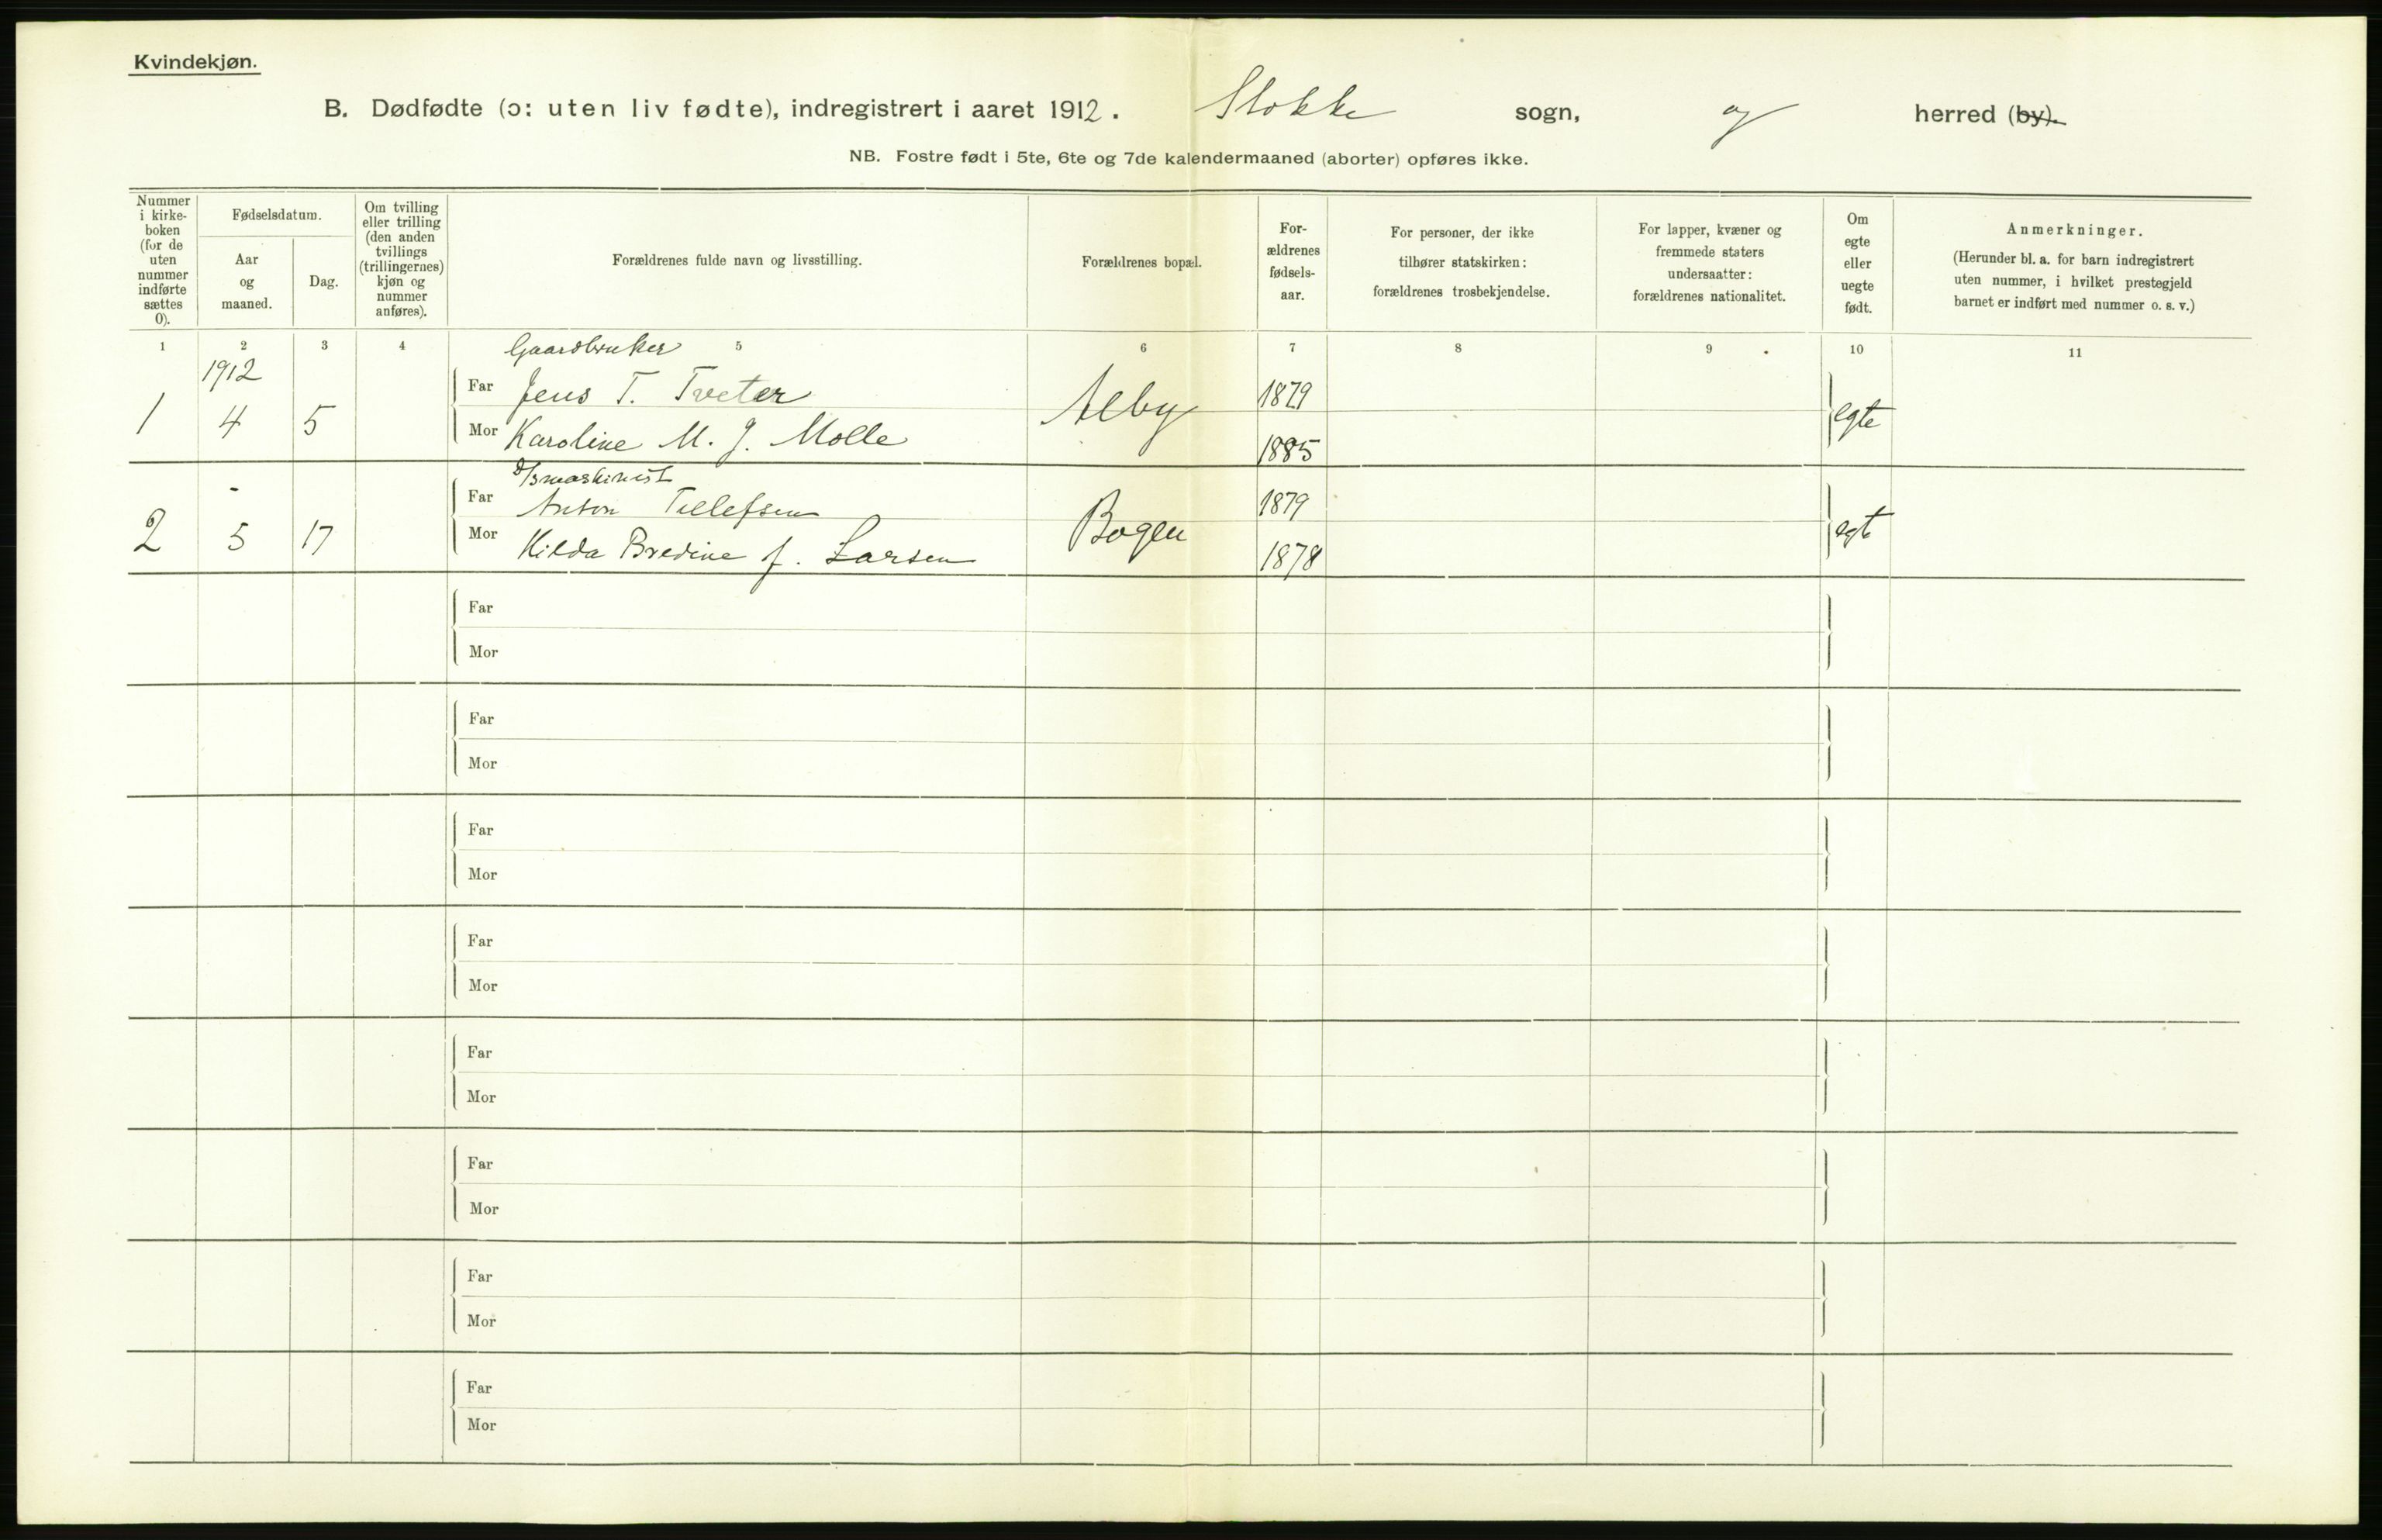 Kvindekjøn.
B. Dødfødte (ɔ: uten liv fødte), indregistrert i aaret 1912. Stokke sogn, og herred (by).
NB. Fostre født i 5te, 6te og 7de kalendermaaned (aborter) opføres ikke.
Nummer i kirke- boken (for de uten nummer indførte sættes 0).
Fødselsdatum.
Aar og maaned.
Dag.
Om tvilling eller trilling (den anden tvillings (trillingernes) kjøn og nummer anføres).
Forældrenes fulde navn og livsstilling.
Forældrenes bopæl.
For- ældrenes fødsels- aar.
For personer, der ikke tilhører statskirken: forældrenes trosbekjendelse.
For lapper, kvæner og fremmede staters undersaatter: forældrenes nationalitet.
Om egte eller uegte født.
Anmerkninger.
(Herunder bl. a. for barn indregistrert uten nummer, i hvilket prestegjeld barnet er indført med nummer o. s. v.)
1 2 3 4 5 6 7 8 9 10 11
1912
Gaardbruker
1 4 5 Far Jens T. Tveter Alby 1879 egte
Mor Karoline M. J. Molle 1885
-
D/Smaskinist
2 5 17 Far Anton Tellefsen Bogen 1879 egt
Mor Hilda Bredine f. Larsen 1878
Far
Mor
Far
Mor
Far
Mor
Far
Mor
Far
Mor
Far
Mor
Far
Mor
Far
Mor